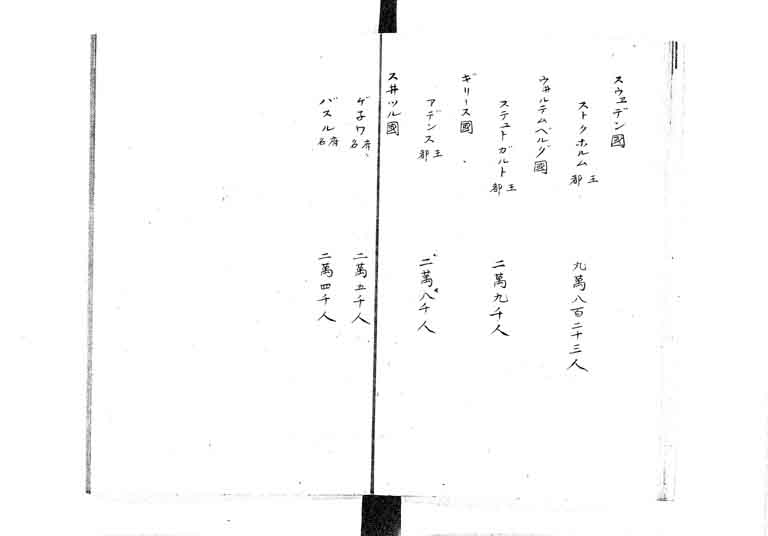 スウヱデン國
ストクホルム 王都 九萬八百二十三人
ウ井ルテムベルグ國
ステュトガルト 王都 二萬九千人
ギリース國
アデンス 王都 二萬八千人
ス井ツル國
ゲ子ワ 府名 二萬五千人
バスル 府名 二萬四千人